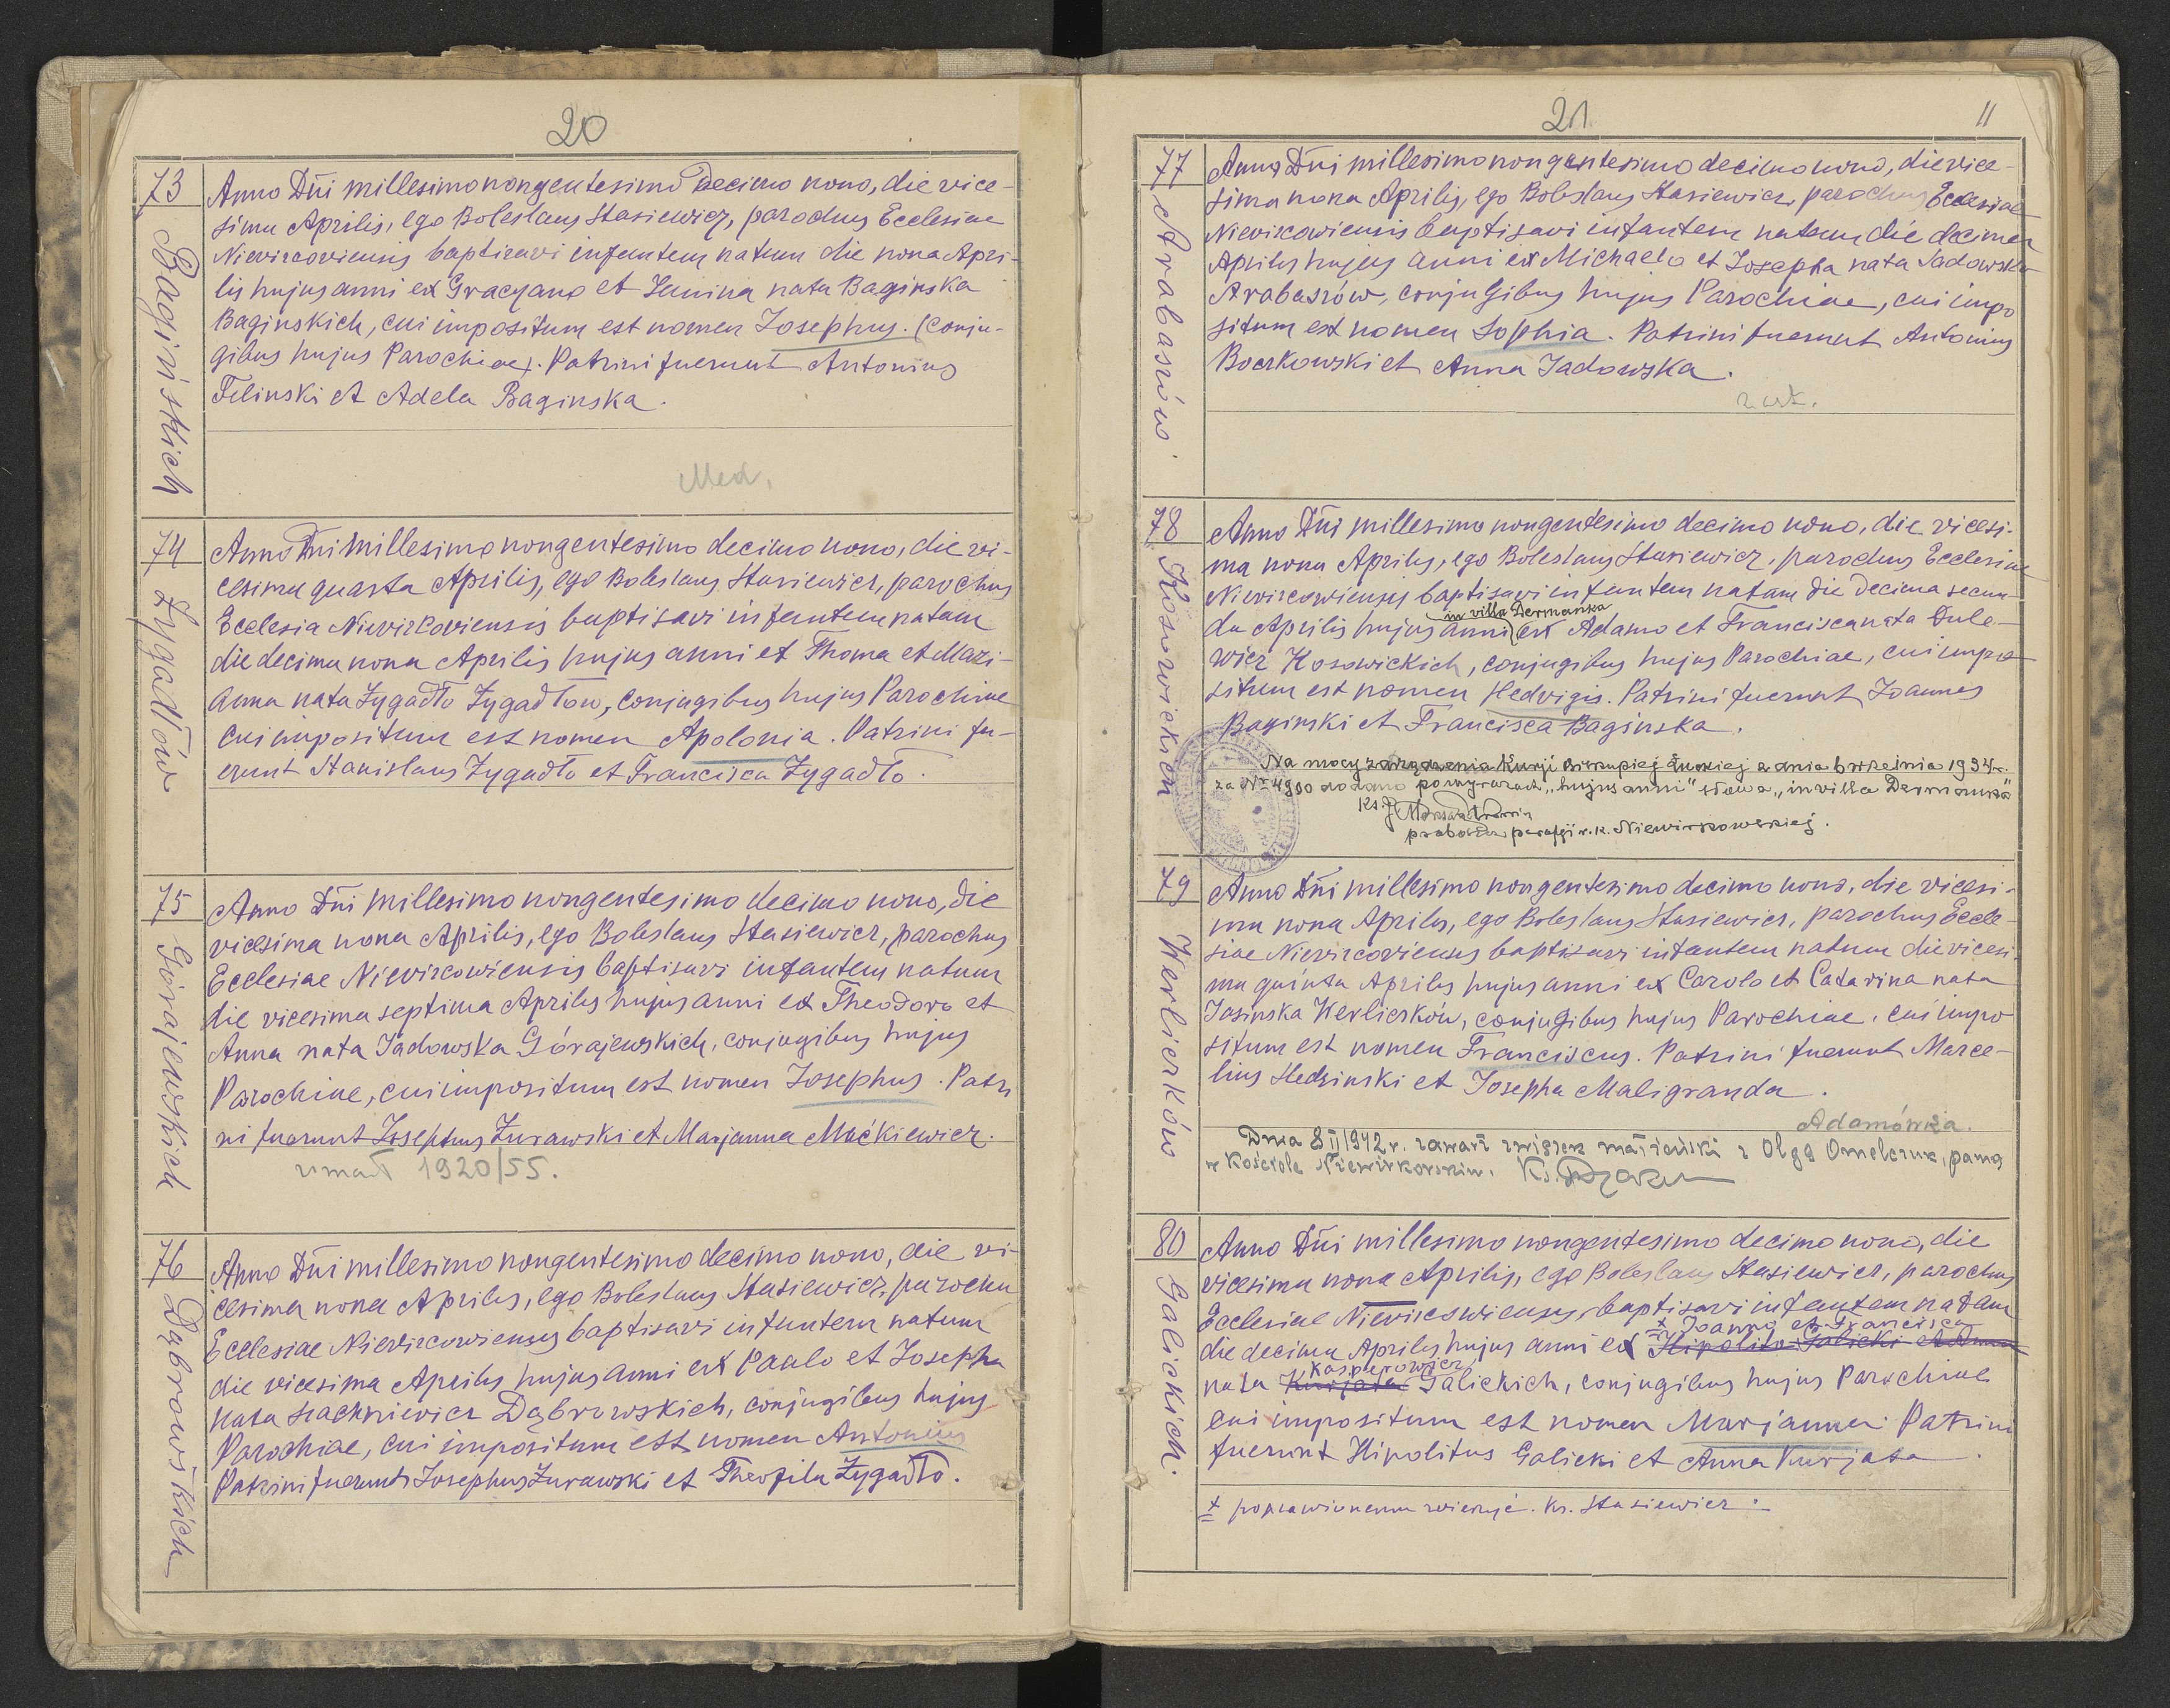 20
73
Baginskich
Anno Dni millesimo nongentesimo decimo nono, die vice-
sima Aprilis, ego Boleslaus Stasiewicz, parochus Ecclesiae
Nievircoviensis baptizavi infantem natum die nona Apri-
lis hujus anni ex Gracyano et Janina nata Baginska
Baginskich, cui impositum est nomen Josephus. (conju-
gibus hujus Parochiae). Patrini fuerunt Antonius
Felinski et Adela Baginska.
Med.
74
Zygadłów
Anno Dni millesimo nongentesimo decimo nono, die vi-
cesima quarta Aprilis, ego Boleslaus Stasiewicz, parochus
Ecclesia Nievircoviensis baptisavi infantem natam
die decima nona Aprilis hujus anni et Thoma et Mari-
anna nata Zygadło Zygadłow, conjugibus hujus Parochiae
cui impositum est nomen Apolonia. Patrini fu-
erunt Stanislaus Zygadło et Francisca Zygadło.
75
Górajewskich
Anno Dni millesimo nongentesimo decimo nono, die
vicesima nona Aprilis, ego Boleslaus Stasiewicz, parochus
Ecclesiae Nievircowiensis baptisavi infantem natum
die vicesima septima Aprilis hujus anni ex Theodoro et
Anna nata Sadowska Górajewskich, conjugibus hujus
Parochiae, cui impositum est nomen Josephus. Patri
ni fuerunt Josephus Zurawski et Marjanna Mackiewicz.
umarł 1920/55.
76
Dąbrowskich
Anno Dni millesimo nongentesimo decimo nono, die vi-
cesima nona Aprilis, ego Boleslaus Stasiewicz, parochu
Ecclesiae Nievircowiensis baptisavi infantem natum
die vicesima Aprilis hujus anni ex Paulo et Josepha
nata Dąbrowskich, conjugibus hujus
Parochiae, cui impositum est nomen Antonius
Patrini fuerunt Josephus Zurawski et Theofila Zygadło.
21
11
77
Arabaszów
Anno Dni millesimo nongentesimo decimo nono, die vice-
sima nona Aprilis, ego Boleslaus Stasiewicz, parochus Ecclesiae
Nievircowiensis baptisavi infantem natam die decima
Aprilis hujus anni ex Michaelo et Josepha nata Sadowska
Arabaszów, conjugibus hujus Parochiae, cui impo
situm est nomen Sophia. Patrini fuerunt Antonius
Boczkowski et Anna Sadowska.
78
Kosowickich
Anno Dni millesimo nongentesimo decimo nono, die vicesi-
ma nona Aprilis, ego Boleslaus Stasiewicz, parochus Ecclesiae
Nievircowiensis baptisavi infantem natam die decima secun-
in villa Dermanka
da Aprilis hujus anni ex Adamo et Francisca nata Dule-
wicz Kosowickich, conjugibus hujus Parochiae, cui impo
situm est nomen Hedvigis. Patrini fuerunt Joannes
Baginski et Francisca Baginska.
Na mocy zarządzenia Kurji Biskupiej Łuckiej z dnia 6 września 1934 r.
za Nr 4980 dodano po wyrazach "hujus anni" słowa "in villa Dermanka"
Ks. J.
proboszcz parafji r.k. Niewirkowskiej.
79
Kerlicków
Anno Dni millesimo nongentesimo decimo nono, die vicesi-
ma nona Aprilis, ego Boleslaus Stasiewicz, parochus Eccle-
siae Nievircoviensis baptisavi infantem natum die vicesi-
ma quinta Aprilis hujus anni ex Carolo et Catarina nata
Jasinska Kerlickow, conjugibus hujus Parochiae, cui impo
situm est nomen Franciscus. Patrini fuerunt Marce-
lius Sledzinski et Josepha Maligranda.
Adamówka.
Dnia 8 II 1942 r. zawarł związek małżeński z Olgą Omelczuk, panną
w Kościele Niewirkowskim. Ks.
80
Galickich.
Anno Dni millesimo nongentesimo decimo nono, die
vicesima nona Aprilis, ego Boleslaus Stasiewicz, parochus
Ecclesiae Nievircowiensis, baptisavi infantem natam
x Joanno et Francisca
die decima Aprilis hujus anni ex Hipolito Galicki et Anna
Kasperowicz
nata Kurjata Galickich, conjugibus hujus Parochiae
cui impositum est nomen Marjanna. Patrini
fuerunt Hipolitus Galicki et Anna Kurjata.
x poprawionemu wierzyć. Ks. Stasiewicz.